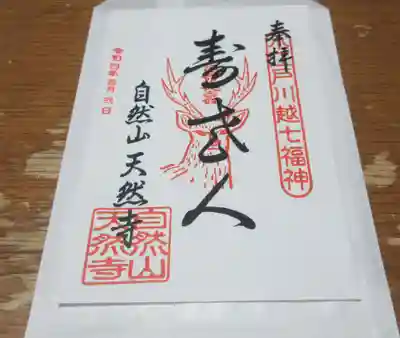 奉拝
小江戸川越七福神
寿老人
令和四年
自然山 天然寺
自然山
天然寺